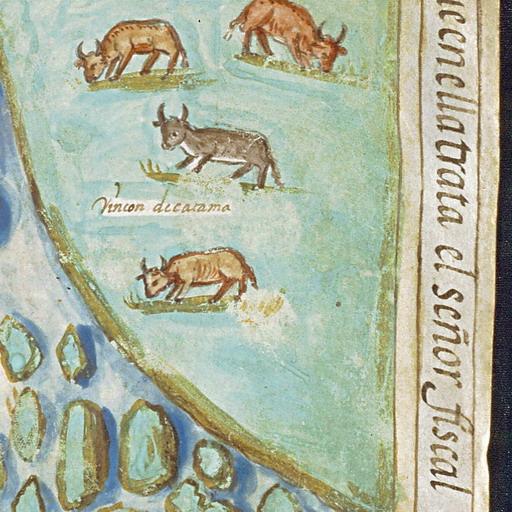 Rincon de catama
neenella trata el señor fiscal